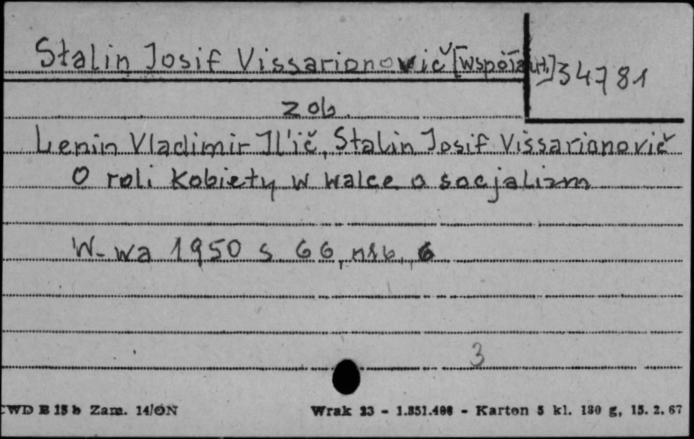 Stalin Josif Vissarionovič [współaut.] 34781
zob.
Lenin Vladimir Il'ič, Stalin Josif Vissarionovič
O roli kobiety w walce o socjalizm
W-wa 1950 s 66, nsb, 6
3
CWD B 15 b Zam. 14/ON Wrak 23 - 1.851.408 - Karton 5 kl. 180 g, 15. 2. 67